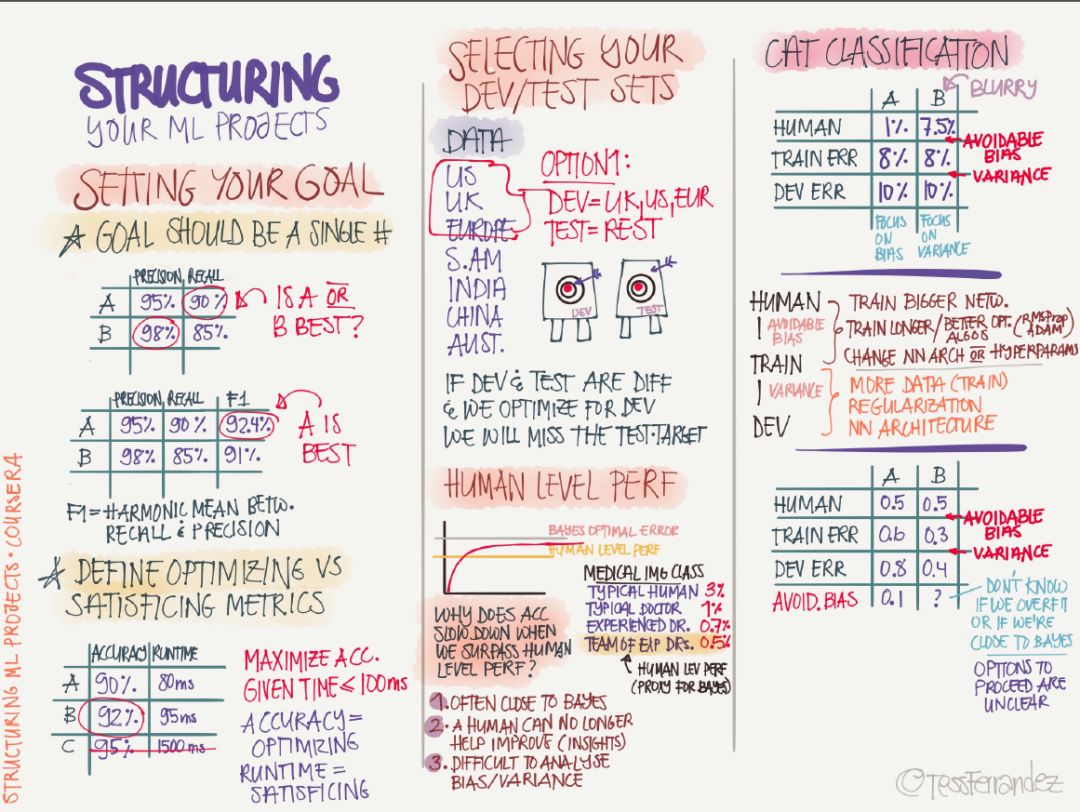 STRUCTURING
YOUR ML PROJECTS
SETTING YOUR GOAL
★ GOAL SHOULD BE A SINGLE #
PRECISION RECALL
A 95% 90%
B 98% 85%
IS A OR
B BEST?
PRECISION RECALL F1
A 95% 90% 92.4%
B 98% 85% 91%
A IS
BEST
F1 = HARMONIC MEAN BETW.
RECALL & PRECISION
★ DEFINE OPTIMIZING VS
SATISFICING METRICS
ACCURACY RUNTIME
A 90% 80ms
B 92% 95ms
C 95% 1500 ms
MAXIMIZE ACC.
GIVEN TIME ≤ 100ms
ACCURACY =
OPTIMIZING
RUNTIME =
SATISFICING
STRUCTURING ML PROJECTS · COURSERA
SELECTING YOUR
DEV/TEST SETS
DATA
US
UK
EUROPE
S.AM
INDIA
CHINA
AUST.
OPTION1:
DEV = UK, US, EUR
TEST = REST
DEV
TEST
IF DEV & TEST ARE DIFF
& WE OPTIMIZE FOR DEV
WE WILL MISS THE TEST-TARGET
HUMAN LEVEL PERF
BAYES OPTIMAL ERROR
HUMAN LEVEL PERF
MEDICAL IMG CLASS
TYPICAL HUMAN 3%
TYPICAL DOCTOR 1%
EXPERIENCED DR. 0.7%
TEAM OF EXP DRS. 0.5%
HUMAN LEV PERF
(PROXY FOR BAYES)
WHY DOES ACC
SLOW DOWN WHEN
WE SURPASS HUMAN
LEVEL PERF?
1. OFTEN CLOSE TO BAYES
2. A HUMAN CAN NO LONGER
HELP IMPROVE (INSIGHTS)
3. DIFFICULT TO ANALYSE
BIAS/VARIANCE
CAT CLASSIFICATION
A B
BLURRY
HUMAN 1% 7.5%
TRAIN ERR 8% 8%
DEV ERR 10% 10%
AVOIDABLE
BIAS
VARIANCE
FOCUS
ON
BIAS
FOCUS
ON
VARIANCE
HUMAN
AVOIDABLE
BIAS
TRAIN
VARIANCE
DEV
TRAIN BIGGER NETW.
TRAIN LONGER/BETTER OPT. ALGOS (RMSProp ADAM)
CHANGE NN ARCH OR HYPERPARAMS
MORE DATA (TRAIN)
REGULARIZATION
NN ARCHITECTURE
A B
HUMAN 0.5 0.5
TRAIN ERR 0.6 0.3
DEV ERR 0.8 0.4
AVOID. BIAS 0.1 ?
AVOIDABLE
BIAS
VARIANCE
DON'T KNOW
IF WE OVERFIT
OR IF WE'RE
CLOSE TO BAYES
OPTIONS TO
PROCEED ARE
UNCLEAR
@TessFerrandez